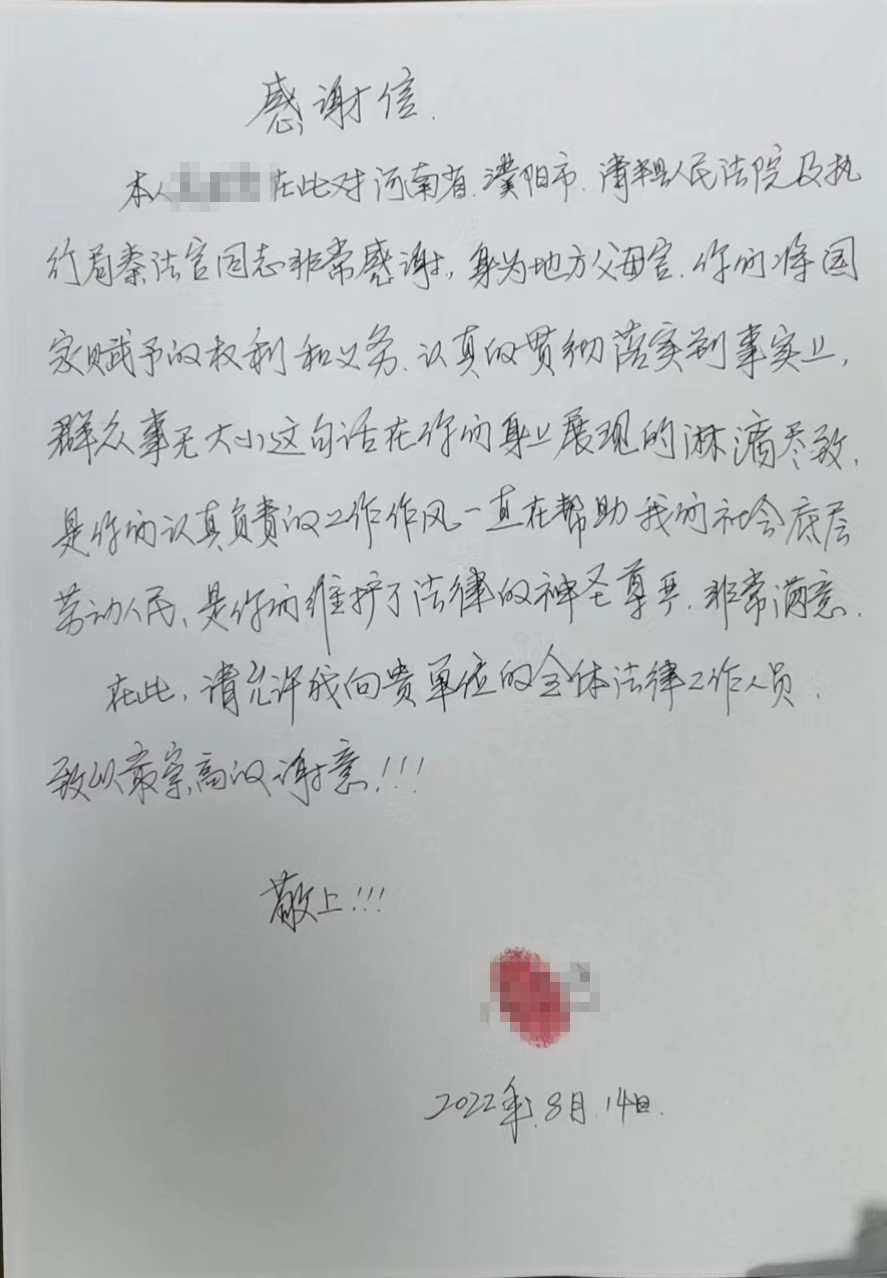 感谢信.
本人 在此对河南省.濮阳市.清丰县人民法院及执
行局秦法官同志非常感谢,身为地方父母官.你们将国
家赋予的权利和义务.认真的贯彻落实到事实上,
群众事无大小这句话在你们身上展现的淋漓尽致,
是你们认真负责的工作作风一直在帮助我们社会底层
劳动人民、是你们维护了法律的神圣尊严.非常满意.
在此,请允许我向贵单位的全体法律工作人员.
致以最崇高的谢意!!!
敬上!!!
2022年.8月.14日.